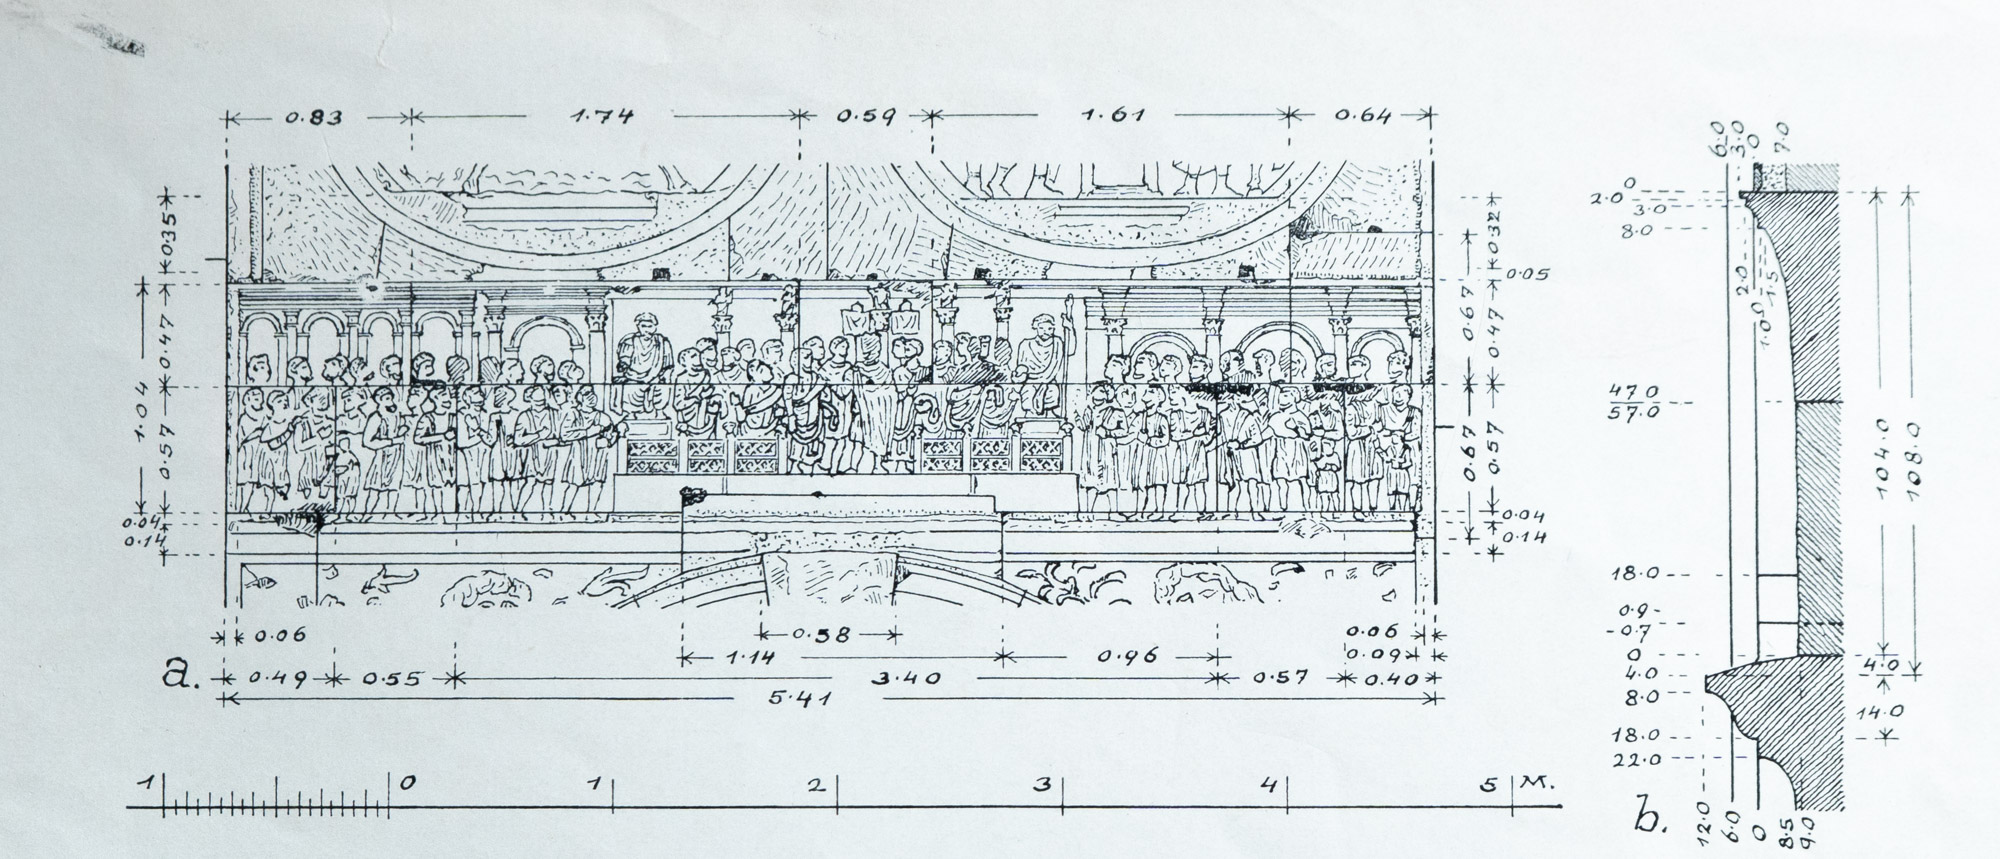 0.83 1.74 0.59 1.61 0.64
6.0 3.0 0 7.0
0
2.0
3.0
8.0
0.35 0.32
0.05
2.0 1.0 1.5
0.47 0.67 0.47
1.04 47.0
57.0
104.0 108.0
0.57 0.67 0.57
0.04 0.04
0.14 0.14
18.0
0.9
-0.7
0
4.0 4.0
8.0
14.0
18.0
22.0
0.06 0.58 0.06
1.14 0.96 0.09
a. 0.49 0.55 3.40 0.57 0.40
5.41
1 0 1 2 3 4 5 M.
b. 12.0 6.0 0 8.5 9.0